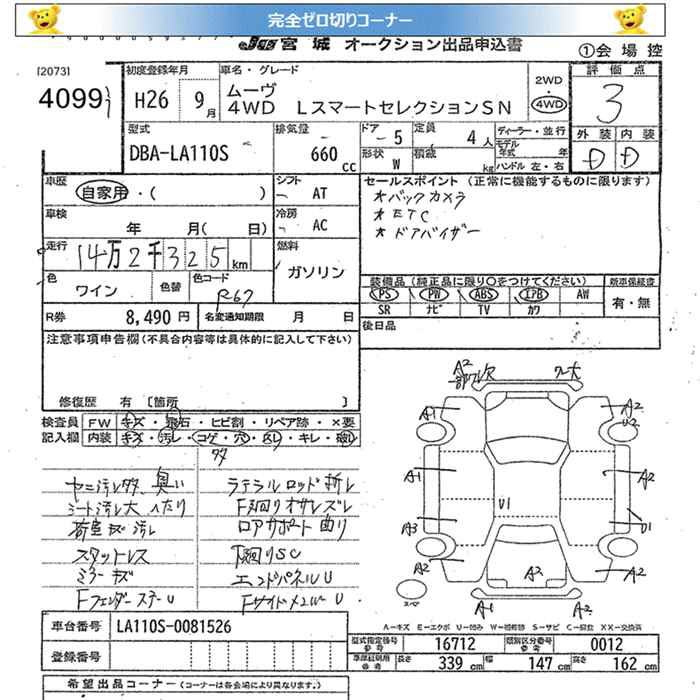 完全ゼロ切りコーナー
JU 宮城 オークション出品申込書
①会場控
[2073]
4099
初度登録年月
H26 9月
車名・グレード
ムーヴ
4WD LスマートセレクションSN
2WD
4WD
評価点
3
外装 内装
D D
型式
DBA-LA110S
排気量
660 CC
ドア 5
形状 W
定員 4人
積載 kg
ディーラー・並行
モデル年式 年
ハンドル 左・右
車歴
自家用・( )
シフト AT
車検
年 月( 日)
冷房 AC
走行
14万2千325km
燃料
ガソリン
色
ワイン
色替
色コード
R67
R券 8,490円
名変通知期限 月 日
セールスポイント (正常に機能するものに限ります)
*バックカメラ
*ETC
*ドアバイザー
装備品(純正品に限り○をつけてください)
PS PW ABS エアB AW
SR ナビ TV カワ
新車保証書
有・無
後日品
注意事項申告欄(不具合内容等は具体的に記入して下さい)
修復歴 有 [箇所 ]
検査員記入欄
FW キズ・飛石・ヒビ割・リペア跡・×要
内装 キズ・汚レ・コゲ・穴・欠レ・キレ・破レ
タタ
ヤニ汚レタタ、臭い
シート汚レ大 ヘたり
荷室キズ汚レ
スタットレス
ミラーキズ
FフェンダーステーU
ラテラルロッド折レ
F廻りオサレズレ
ロアサポート曲り
下廻りSC
エンドパネルU
FサイドメンバーU
A2
一部ワレ欠
グ大
A1
A2
U2
A1
A2
U1
A3
U1
A2
A2
A2
A1
A2
スペア
A-キズ E-エクボ U-凹み W-補修跡 S-サビ C-腐蝕 XX-交換済
車台番号 LA110S-0081526
登録番号
型式指定番号 参考 16712
類別区分番号 参考 0012
車庫証明用 参考 長さ 339cm 幅 147cm 高さ 162cm
希望出品コーナー(コーナーは各会場により異なります。)